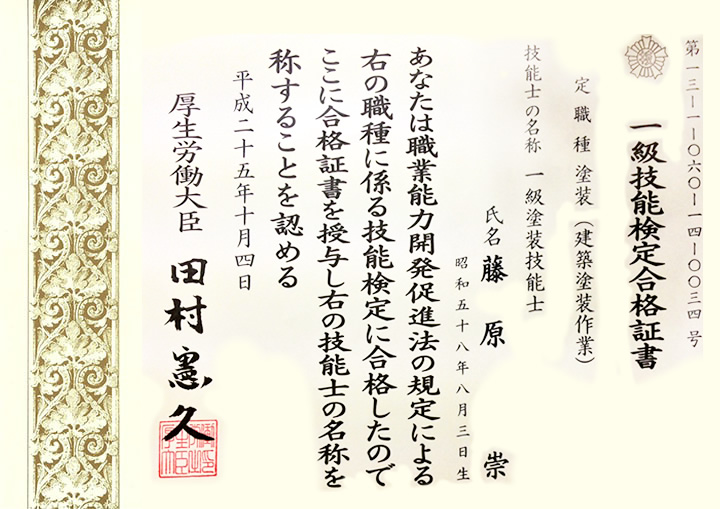 第一三―一―〇六〇―一四―〇〇三四号
一級技能検定合格証書
定職種 塗装(建築塗装作業)
技能士の名称 一級塗装技能士
氏名 藤原 崇
昭和五十八年八月三日生
あなたは職業能力開発促進法の規定による
右の職種に係る技能検定に合格したので
ここに合格証書を授与し右の技能士の名称を
称することを認める
平成二十五年十月四日
厚生労働大臣 田村憲久